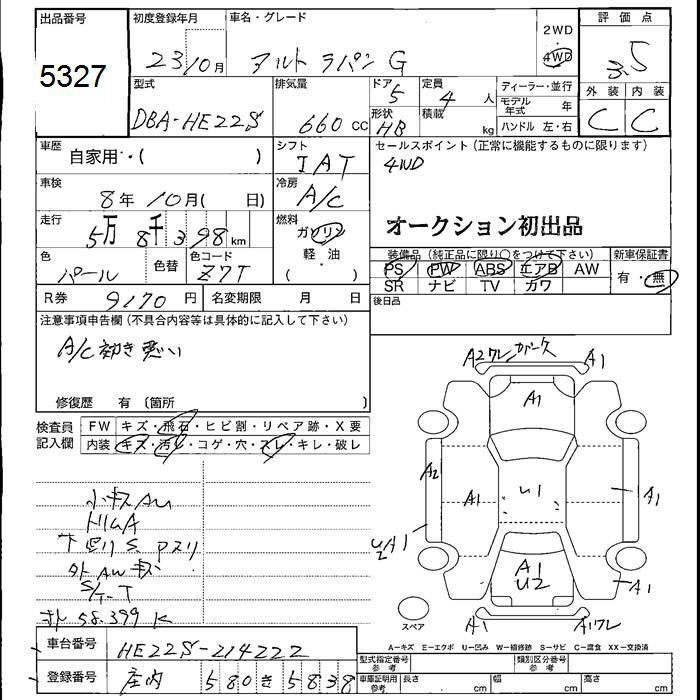 出品番号 5327
初度登録年月 23/10月
車名・グレード アルト ラパン G
2WD
4WD
評価点 3.5
外装 C 内装 C
型式 DBA-HE22S
排気量 660 CC
ドア 5
形状 HB
定員 4 人
積載 kg
ディーラー・並行
モデル年式 年
ハンドル 左・右
車歴 自家用・( )
シフト IAT
セールスポイント(正常に機能するものに限ります)
4WD
オークション初出品
車検 8年10月( 日)
冷房 A/C
走行 5万8千398km
燃料 ガソリン
軽・油
( )
色 パール
色替
色コード Z7T
装備品(純正品に限り○をつけて下さい)
PS PW ABS エアB AW
SR ナビ TV カワ
新車保証書
有・無
R券 9170円
名変期限 月 日
後日品
注意事項申告欄(不具合内容等は具体的に記入して下さい)
A/C効き悪い
修復歴 有〔箇所 〕
検査員記入欄
FW キズ・飛石・ヒビ割・リペア跡・X要
内装 キズ・汚レ・コゲ・穴・スレ・キレ・破レ
小キズAU
トリムA
下廻りS
外AWキズ
58,399K
A2ワレ ガーク A1
A1
A2
A1
U1
A1
A1
A1
U2
A1
A1
A1ワレ
スペア
A-キズ E-エクボ U-凹み W-補修跡 S-サビ C-腐食 XX-交換済
車台番号 HE22S-214222
登録番号 庄内 580 き 5838
型式指定番号 参考
類別区分番号 参考
車庫証明用 参考 長さ cm 幅 cm 高さ cm